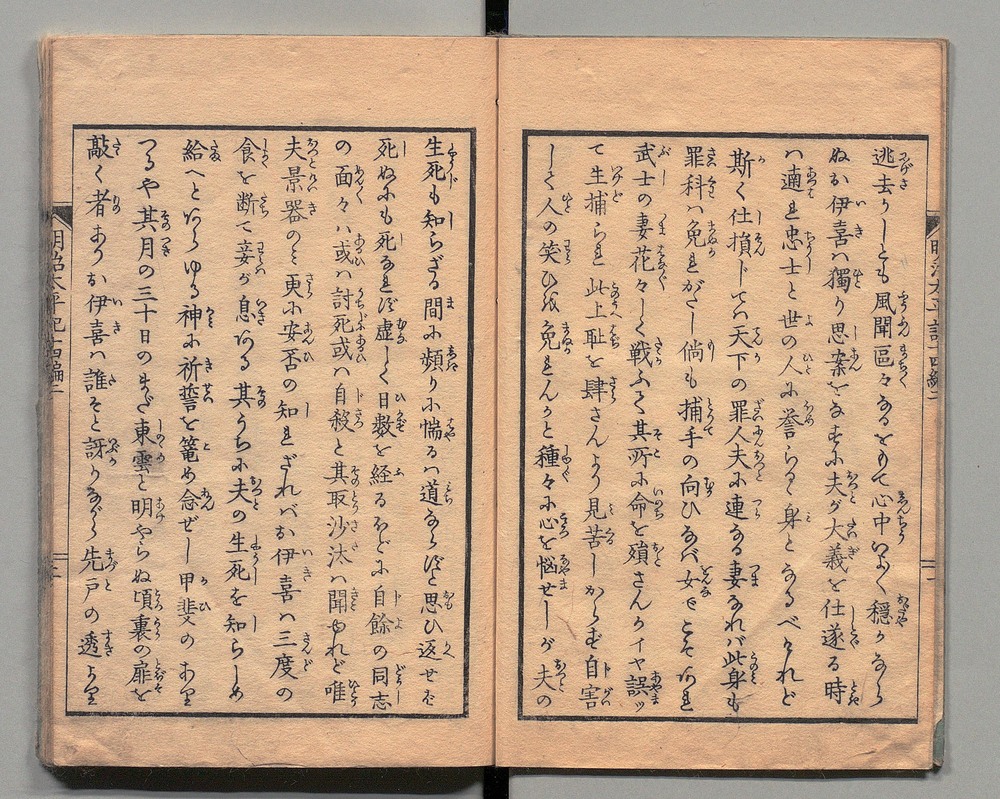 逃去りしとも風聞區々なるをもて心中いよゝ穏かなら
ぬか伊喜ハ獨り思案をなすに夫が大義を仕遂る時
ハ適れ忠士と世の人に誉らるゝ身となるべけれど
斯く仕損じてハ天下の罪人夫に連る妻なれバ此身も
罪科ハ免れがたし倘も捕手の向ひなバ女でこそあれ
武士の妻花々しく戦ふて其所に命を殞さんかイヤ誤ッ
て生捕られ此上耻を肆さんより見苦しからず自害
して人の笑ひを免れんかと種々に心を悩せしが夫の
生死も知らざる間に頻りに惴るハ道ならずと思ひ返せば
死ぬにも死なれず虚しく日數を経るほどに自餘の同志
の面々ハ或ハ討死或ハ自殺と其取沙汰ハ聞ゆれど唯
夫景器のミ更に安否の知れざれバか伊喜ハ三度の
食を断て妾が息ある其うちに夫の生死を知らしめ
給へとあらゆる神に祈誓を篭め念ぜし甲斐のあり
つるや其月の三十日のまだ東雲と明やらぬ頃裏の扉を
敲く者ありか伊喜ハ誰そと訝りながら先戸の透より
明治太平記十四編二
明治太平記十四編二